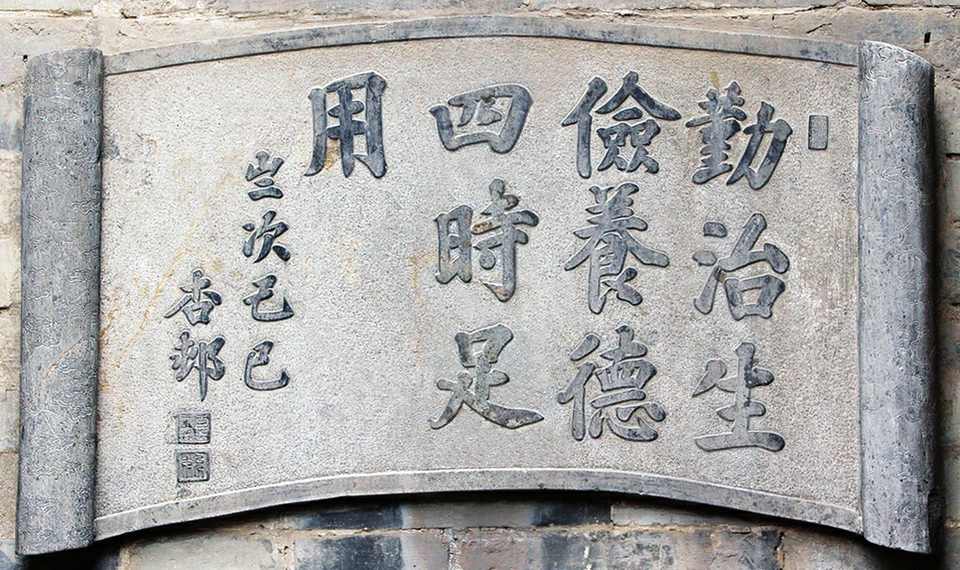 勤治生
儉養德
四時足
用
亗次己巳
杏邨